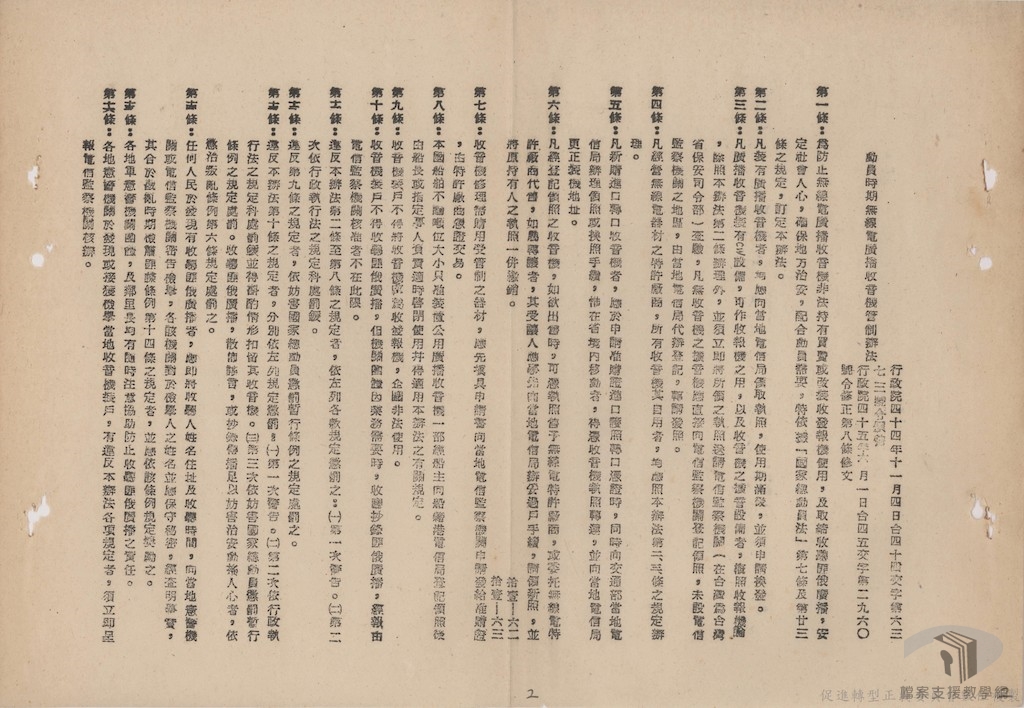 動員時期無線電廣播收音機管制辦法
行政院四十四年十一月四日台四十四交字第六三
七三號令頒發
行政院四十五年六月一日台四五交字第二九六〇
號令修正第八條條文
第一條：為防止無線電廣播收音機非法持有買賣或改裝收發報機使用，及取締收聽匪俄廣播，安
定社會人心，確保地方治安，配合動員需要，特依據「國家總動員法」第七條及第廿三
條之規定，訂定本辦法。
第二條：凡裝有廣播收音機者，均應向當地電信局領取執照，使用期滿後，並須申請換發。
第三條：凡廣播收音機裝有設備，可作收報機之用，以及收音機之擴音設備者，
，除照本辦法第二條辦理外，並須立即將所領之執照送請電信監察機關（在台灣為台灣
省保安司令部）登記，凡無收音機之機關應直接向電信監察機關登記領照，未設電信
監察機關之地區，由當地電信局代辦登記，轉請發照。
第四條：凡經營無線電器材之特許廠商，所有收音機其自用者，均應照本辦法第二、三條之規定辦
理。
第五條：凡新購進口轉口收音機者，應於申請准購證進口護照轉口憑證時，同時向交通部當地電
信局辦理領照或換照手續，惟在省境內移動者，得憑收音機執照轉運，並向當地電信局
更正裝機地址。
第六條：凡經登記領照之收音機，如欲出售時，可憑執照售予無線電特許廠商，或委托無線電特
許廠商代售，如農業讓者，其受讓人應事先向當地電信局辦妥過戶手續，請領新照，並
將原持有人之執照一併繳銷。
拾壹—六二
拾壹—六三
第七條：收音機修理需購用受管制之器材，應先填具申請書向當地電信監察機關申請發給准購證
，向特許廠商憑證交易。
第八條：本國船舶不論噸位大小只准裝置公用廣播收音機一部經船主向船籍港電信局登記領照後
由船長或指定專人負責適時啓閉使用并得適用本辦法之有關規定。
第九條：收音機裝戶不得將收音機改裝為收發報機，企圖非法使用。
第十條：收音機裝戶不得收聽匪俄廣播，但機關團體因業務需要時，收聽抄錄匪俄廣播，經報由
電信監察機關核准者不在此限。
第十一條：違反本辦法第二條至第八條之規定者，依左列各款規定懲罰之：㈠第一次警告。㈡第二
次依行政執行法之規定科處罰鍰。
第十二條：違反第九條之規定者，依妨害國家總動員懲罰暫行條例之規定處罰之。
第十三條：違反本辦法第十條之規定者，分別依左列規定懲罰：㈠第一次警告。㈡第二次依行政執
行法之規定科處罰鍰並得斟酌情形扣留其收音機。㈢第三次依妨害國家總動員懲罰暫行
條例之規定處罰。收聽匪俄廣播，散佈謠言，或抄錄傳播足以妨害治安動搖人心者，依
懲治叛亂條例第六條規定處罰之。
第十四條：任何人民於發現有收聽匪俄廣播者，應即將收聽人姓名住址及收聽時間，向當地憲警機
關或電信監察機關密告檢舉，各該機關對於檢舉人之姓名並應保守秘密，經查明屬實，
其合於戡亂時期檢肅匪諜條例第十四條之規定者，並應依該條例規定獎勵之。
第十五條：各地軍憲警機關團體，及鄰里長均有隨時注意協助防止收聽匪俄廣播之責任。
第十六條：各地憲警機關於發現或接獲檢舉當地收音機裝戶，有違反本辦法各項規定者，須立即呈
報電信監察機關核辦。
2
檔案支援教學網